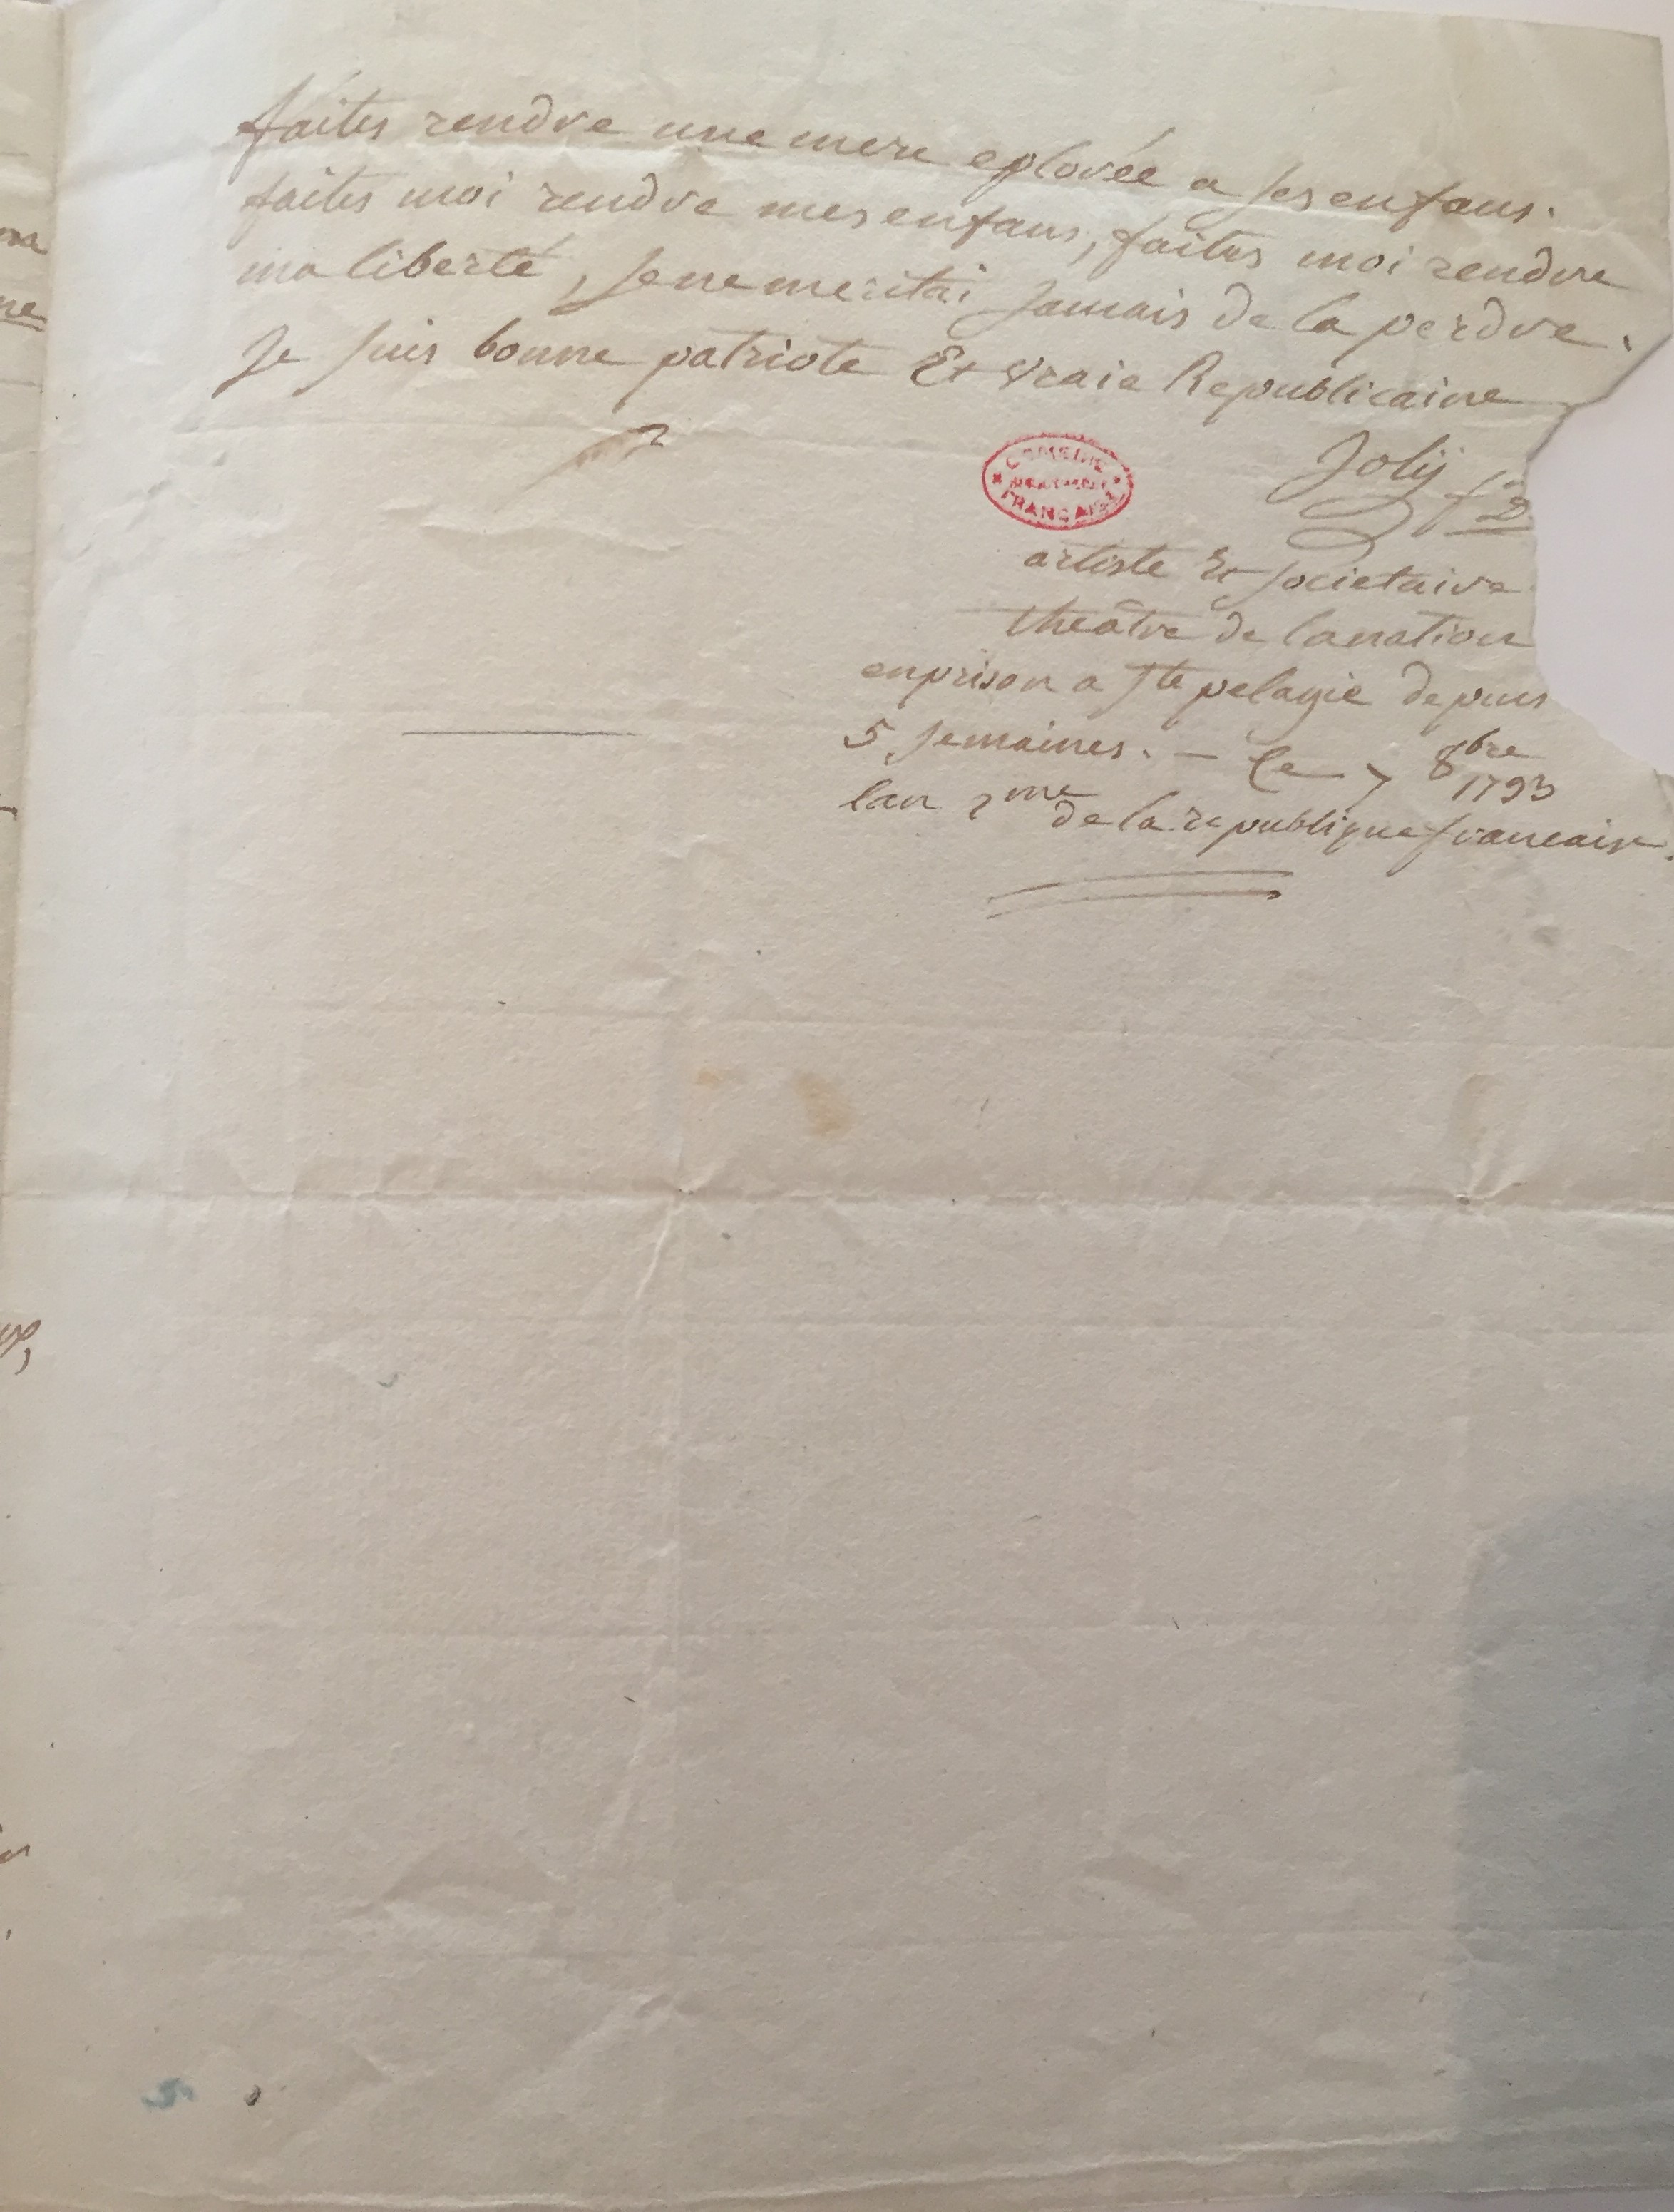 faites rendre une mere eplorée a ses enfans.
faites moi rendre mes enfans, faites moi rendre
ma liberté, je ne meritai jamais de la perdre.
je suis bonne patriote Et vraie Republicaine
COMEDIE
FRANÇAISE
Joly f D
artiste Et societaire
theâtre de la nation
en prison a Ste pelagie depuis
5 semaines. — le 7 8bre
1793
lan 2me de la republique francaise.